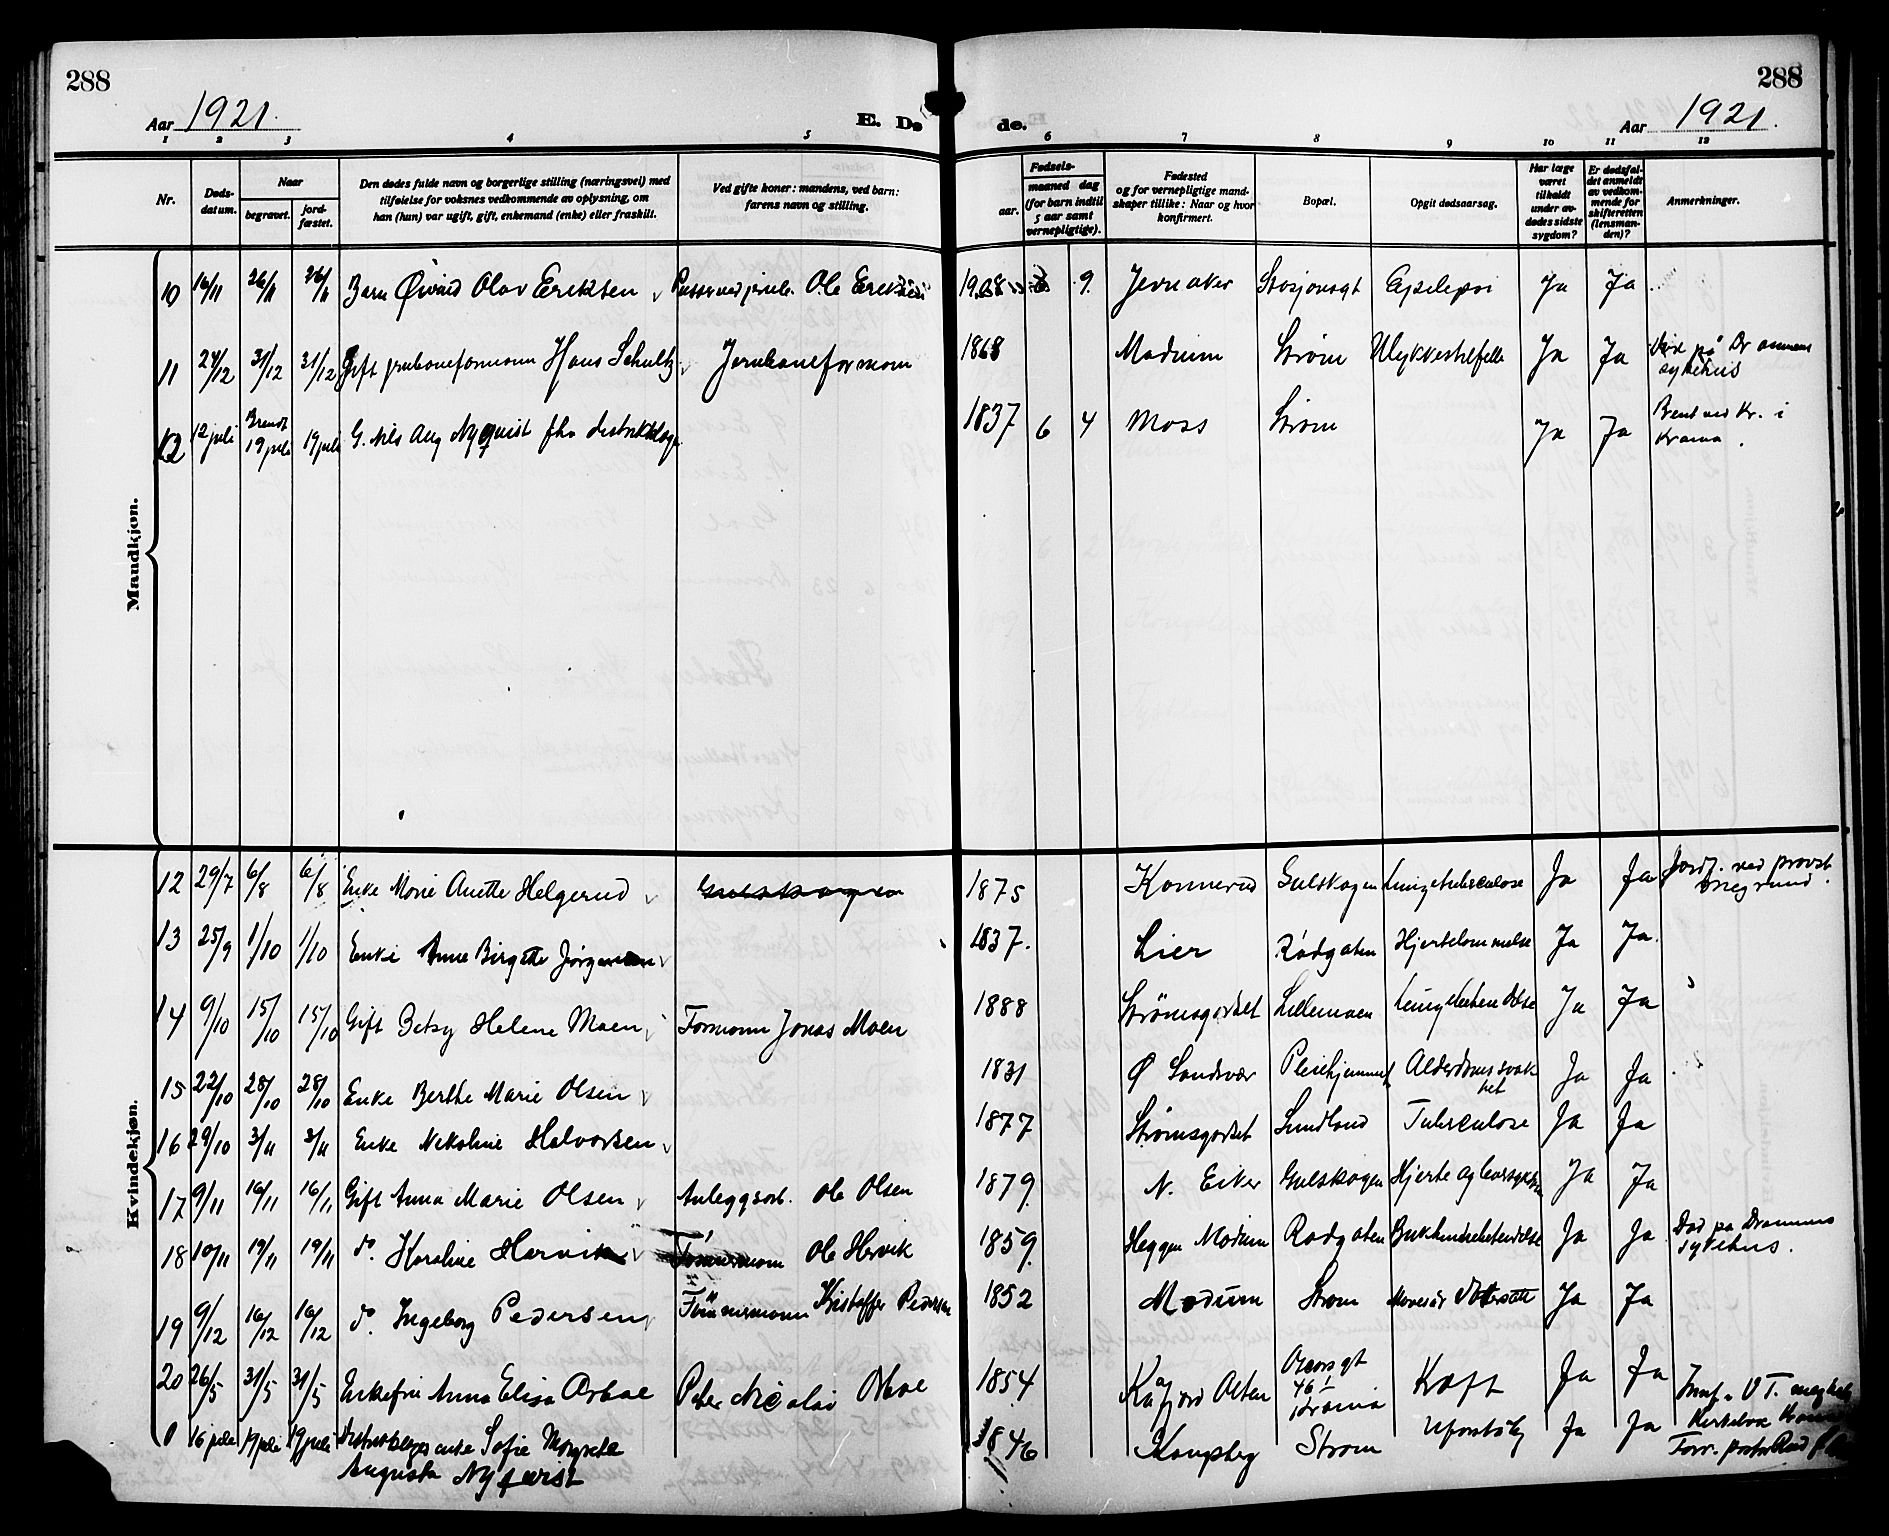 288
288
Aar 1921.
E. Dø
de.
Aar 1921.
1 2 3 4 5 6 7 8 9 10 11 12
Nr.
Døds-
datum.
Naar
begravet.
jord-
fæstet.
Den dødes fulde navn og borgerlige stilling (næringsvei) med
tilføielse for voksnes vedkommende av oplysning, om
han (hun) var ugift, gift, enkemand (enke) eller fraskilt.
Ved gifte koner: mandens, ved barn:
farens navn og stilling.
Fødsels-
aar.
maaned dag
(for barn indtil
5 aar samt
vernepligtige).
Fødested
og for vernepligtige mand-
skaper tillike: Naar og hvor
konfirmert.
Bopæl.
Opgit dødsaarsag.
Har læge
været
tilkaldt
under av-
dødes sidste
sygdom?
Er dødsfal-
det anmeldt
av vedkom-
mende for
skifteretten
(lensman-
den)?
Anmerkninger.
Mandkjøn.
10 16/11 26/11 26/11 Barn Øivind Olav Eriksen Ole Eriksen 1908 9. Jevnaker Stasjonsgt Epilepsi Ja Ja
11 24/12 31/12 31/12 Gift jernbaneformann Hans Schultz Jernbaneformann 1868 Modum Strøm Ulykkestilfelle Ja Ja Død på Drammens
sykehus
12 12 juli Brendt
19 juli 19 juli G. Nils Aug Nyquist fhv distriktslæge 1837 6 4 Moss Strøm Ja Ja Brent ved Kr. i
Krania.
Kvindekjøn.
12 29/7 6/8 6/8 Enke Marie Anette Helgerud Gulskogen 1875 Konnerud Gulskogen Lungetuberculose Ja Ja Jordf. ved provst
13 25/9 1/10 1/10 Enke Anne Birgitte Jørgensen 1837. Lier Rødgaten Hjertelammelse Ja Ja.
14 9/10 15/10 15/10 Gift Betsy Helene Moen Formann Jonas Moen 1888 Strømsgodset Lillemoen Lungebetendelse Ja Ja
15 22/10 28/10 28/10 Enke Berthe Marie Olsen 1831 Ø Sandsvær Pleiehjemmet Alderdomssvak
het Ja Ja
16 29/10 3/11 3/11 Enke Nikoline Halvorsen 1877 Strømsgodset Sundland Tuberculose Ja Ja
17 9/11 16/11 16/11 Gift Anna Marie Olsen Anleggsarb. Ole Olsen 1879 N. Eiker Gulskogen Hjerte Ja Ja
18 10/11 19/11 19/11 do. Karoline Hervik Tømmermann Ole Hervik 1859 Heggen Modum Rødgaten Bukhindebetendelse Ja Ja Død pa Drammens
sykehus.
19 9/12 16/12 16/12 do. Ingeborg Pedersen Tømmermann Kristoffer Pedersen 1852 Modum Strøm Ja Ja
20 26/5 31/5 31/5 Enkefru Anna Elisa Peter Nicolai 1854 Kåfjord Alten 46 I
Krania Kræft Ja Ja
0 16 juli 19 juli 19 juli enke Sofie Margrete
Augusta Nyquist 1846 Kongsberg Strøm Ja Ja